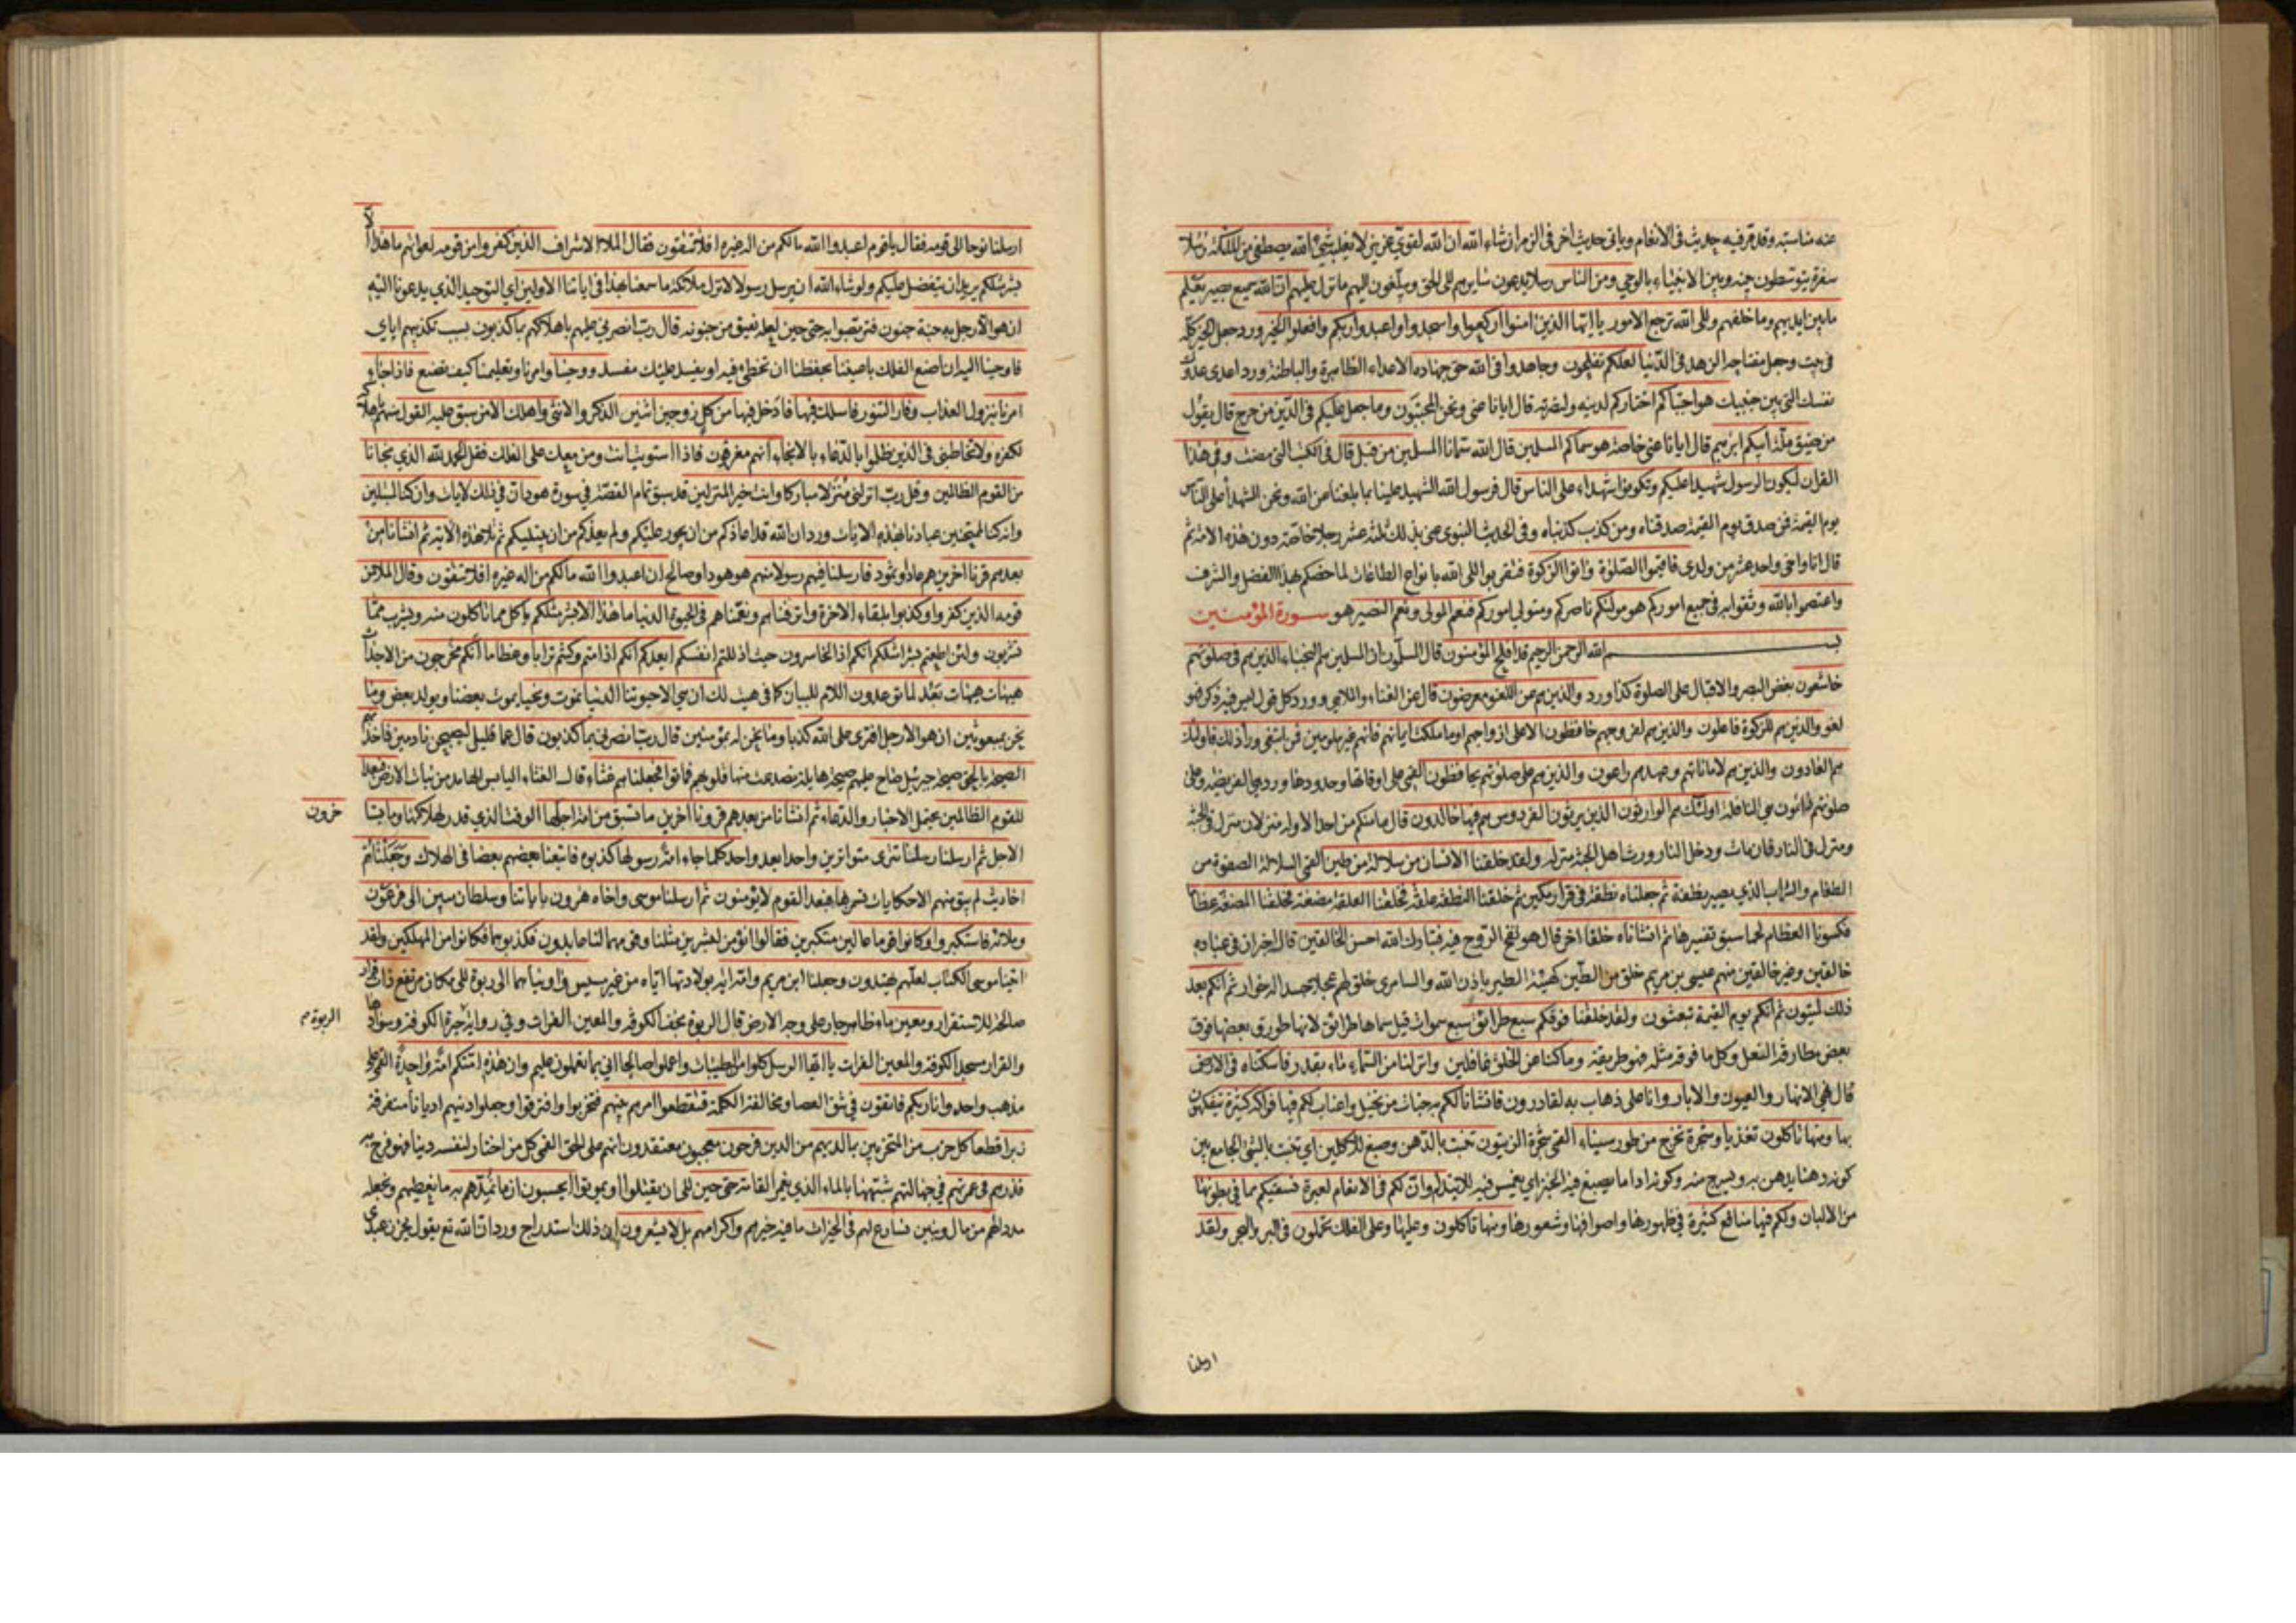 عنه مناسبته وقد مر فيه حديث في الانعام وياتي حديث اخر في الزمر ان شاء الله ان الله لقوي عزيز لا يغلبه شيء الله يصطفي من الملئكة رسلا
سفرة يتوسطون بينه وبين الانبياء بالوحي ومن الناس رسلا يدعون سايرهم الى الحق ويبلغون اليهم ما نزل عليهم ان الله سميع بصير يعلم
ما بين ايديهم وما خلفهم والى الله ترجع الامور يا ايها الذين امنوا اركعوا واسجدوا واعبدوا ربكم وافعلوا الخير ورد جعل الخير كله
في بيت وجعل مفتاحه الزهد في الدنيا لعلكم تفلحون وجاهدوا في الله حق جهاده الاعداء الظاهرة والباطنة ورد اعدى عدوك
نفسك التي بين جنبيك هو اجتباكم اختاركم لدينه ولنصرته قال ايانا عنى ونحن المجتبون وما جعل عليكم في الدين من حرج قال يقول
من ضيق ملة ابيكم ابرهيم قال ايانا عنى خاصة هو سماكم المسلمين قال الله سمانا المسلمين من قبل قال في الكتب التي مضت وفي هذا
القران ليكون الرسول شهيدا عليكم وتكونوا شهداء على الناس قال فرسول الله الشهيد علينا بما بلغنا عن الله ونحن الشهداء على الناس
يوم القيمة فمن صدق يوم القيمة صدقناه ومن كذب كذبناه وفي الحديث النبوي عنى بذلك ثلثة عشر رجلا خاصة دون هذه الامة ثم
قال انا واخي واحد عشر من ولدي فاقيموا الصلوة واتوا الزكوة فتقربوا الى الله بانواع الطاعات لما خصكم بهذا الفضل والشرف
واعتصموا بالله وثقوا به في جميع اموركم هو موليكم ناصركم ومتولي اموركم فنعم المولى ونعم النصير هو سورة المؤمنين
بسم الله الرحمن الرحيم قد افلح المؤمنون قال المسلمون ان المسلمين هم النجباء الذين هم في صلوتهم
خاشعون بغض البصر والاقبال على الصلوة كذا ورد والذين هم عن اللغو معرضون قال عن الغناء والملاهي وورد كل قول ليس فيه ذكر فهو
لغو والذين هم للزكوة فاعلون والذين هم لفروجهم حافظون الا على ازواجهم او ما ملكت ايمانهم فانهم غير ملومين فمن ابتغى وراء ذلك فاولئك
هم العادون والذين هم لاماناتهم وعهدهم راعون والذين هم على صلوتهم يحافظون القمي على اوقاتها وحدودها ورد هي الفريضة وعلى
صلوتهم دائمون هي النافلة اولئك هم الوارثون الذين يرثون الفردوس هم فيها خالدون قال ما منكم من احد الا وله منزلان منزل في الجنة
ومنزل في النار فان مات ودخل النار ورث اهل الجنة منزله ولقد خلقنا الانسان من سلالة من طين القمي السلالة الصفوة من
الطعام والشراب الذي يصير نطفة ثم جعلناه نطفة في قرار مكين ثم خلقنا النطفة علقة فخلقنا العلقة مضغة فخلقنا المضغة عظاما
فكسونا العظام لحما سبق تفسيرها ثم انشاناه خلقا اخر قال هو نفخ الروح فيه فتبارك الله احسن الخالقين قال اخبر ان في عباده
خالقين وغير خالقين منهم عيسى بن مريم خلق من الطين كهيئة الطير باذن الله والسامري خلق لهم عجلا جسدا له خوار ثم انكم بعد
ذلك لميتون ثم انكم يوم القيمة تبعثون ولقد خلقنا فوقكم سبع طرائق سبع سموات قيل سماها طرائق لانها طورق بعضها فوق
بعض مطارقة النعل وكل ما فوقه مثله فهو طريقة وما كنا عن الخلق غافلين وانزلنا من السماء ماء بقدر فاسكناه في الارض
قال هي الانهار والعيون والابار وانا على ذهاب به لقادرون فانشانا لكم به جنات من نخيل واعناب لكم فيها فواكه كثيرة تتفكهون
بها ومنها تاكلون تغذيا وشجرة تخرج من طور سيناء القمي شجرة الزيتون تنبت بالدهن وصبغ للاكلين اي تنبت بالشيء الجامع بين
كونه دهنا يدهن به ويسرج منه وكونه اداما يصبغ فيه الخبز اي يغمس فيه للايتدام وان لكم في الانعام لعبرة نسقيكم مما في بطونها
من الالبان ولكم فيها منافع كثيرة في ظهورها واصوافها وشعورها ومنها تاكلون وعليها وعلى الفلك تحملون في البر والبحر ولقد
ارسلنا
ارسلنا نوحا الى قومه فقال يا قوم اعبدوا الله ما لكم من اله غيره افلا تتقون فقال الملا الاشراف الذين كفروا من قومه لعوامهم ما هذا الا
بشر مثلكم يريد ان يتفضل عليكم ولو شاء الله ان يرسل رسولا لانزل ملائكة ما سمعنا بهذا في ابائنا الاولين اي التوحيد الذي يدعونا اليه
ان هو الا رجل به جنة جنون فتربصوا به حتى حين لعله يفيق من جنونه قال رب انصرني عليهم باهلاكهم بما كذبون بسبب تكذيبهم اياي
فاوحينا اليه ان اصنع الفلك باعيننا بحفظنا ان تخطئ فيه او يفسد عليك مفسد ووحينا وامرنا وتعليمنا كيف تصنع فاذا جاء
امرنا بنزول العذاب وفار التنور فاسلك فيها فادخل فيها من كل زوجين اثنين الذكر والانثى واهلك الا من سبق عليه القول منهم باهلاكه
لكفره ولا تخاطبني في الذين ظلموا بالدعاء بالانجاء انهم مغرقون فاذا استويت انت ومن معك على الفلك فقل الحمد لله الذي نجانا
من القوم الظالمين وقل رب انزلني منزلا مباركا وانت خير المنزلين قد سبق تمام القصة في سورة هود ان في ذلك لايات وان كنا لمبتلين
وان كنا لممتحنين عبادنا بهذه الايات ورد ان الله قد اعاذكم من ان يجور عليكم ولم يعذكم من ان يبتليكم ثم تلا هذه الاية ثم انشانا من
بعدهم قرنا اخرين هم عاد او ثمود فارسلنا فيهم رسولا منهم هو هود او صالح ان اعبدوا الله ما لكم من اله غيره افلا تتقون وقال الملا من
قومه الذين كفروا وكذبوا بلقاء الاخرة واترفناهم ونعمناهم في الحيوة الدنيا ما هذا الا بشر مثلكم ياكل مما تاكلون منه ويشرب مما
تشربون ولئن اطعتم بشرا مثلكم انكم اذا لخاسرون حيث اذللتم انفسكم ايعدكم انكم اذا متم وكنتم ترابا وعظاما انكم مخرجون من الاجداث
هيهات هيهات بعد لما توعدون اللام للبيان كما في هيت لك ان هي الا حيوتنا الدنيا نموت ونحيا يموت بعضنا ويولد بعض وما
نحن بمبعوثين ان هو الا رجل افترى على الله كذبا وما نحن له بمؤمنين قال رب انصرني بما كذبون قال عما قليل ليصبحن نادمين فاخذتهم
الصيحة بالحق صيحة جبرئيل صاح عليهم صيحة هايلة تصدعت منها قلوبهم فماتوا فجعلناهم غثاء قال الغثاء اليابس الهامد من نبات الارض فبعدا
للقوم الظالمين يحتمل الاخبار والدعاء ثم انشانا من بعدهم قرونا اخرين ما تسبق من امة اجلها الوقت الذي قدر لهلاكها وما يستا
خرون
الاجل ثم ارسلنا رسلنا تترى متواترين واحدا بعد واحد كلما جاء امة رسولها كذبوه فاتبعنا بعضهم بعضا في الهلاك وجعلناهم
احاديث لم يبق منهم الا حكايات فبعدا لقوم لا يؤمنون ثم ارسلنا موسى واخاه هرون باياتنا وسلطان مبين الى فرعون
وملائه فاستكبروا وكانوا قوما عالين متكبرين فقالوا انؤمن لبشرين مثلنا وقومهما لنا عابدون فكذبوهما فكانوا من المهلكين ولقد
اتينا موسى الكتاب لعلهم يهتدون وجعلنا ابن مريم وامه اية بولادتها اياه من غير مسيس واويناهما الى ربوة الى مكان مرتفع ذات قرار
صالحة للاستقرار ومعين ماء ظاهر جار على وجه الارض قال الربوة نجف الكوفة والمعين الفرات وفي رواية حيرة الكوفة وسوادها
الربوة
والقرار مسجد الكوفة والمعين الفرات يا ايها الرسل كلوا من الطيبات واعملوا صالحا اني بما تعملون عليم وان هذه امتكم امة واحدة القمي على
مذهب واحد وانا ربكم فاتقون في شق العصا ومخالفة الكلمة فتقطعوا امرهم بينهم فتحزبوا وافترقوا وجعلوا دينهم اديانا متفرقة
زبرا قطعا كل حزب من المتحزبين بما لديهم من الدين فرحون معجبون معتقدون انهم على الحق القمي كل من اختار لنفسه دينا فهو فرح به
فذرهم في غمرتهم في جهالتهم شبهها بالماء الذي يغمر القامة حتى حين الى ان يقتلوا او يموتوا ايحسبون ان ما نمدهم به ما نعطيهم ونجعله
مددا لهم من مال وبنين نسارع لهم في الخيرات ما فيه خيرهم واكرامهم بل لا يشعرون ان ذلك استدراج ورد ان الله تع يقول يحزن عبدي